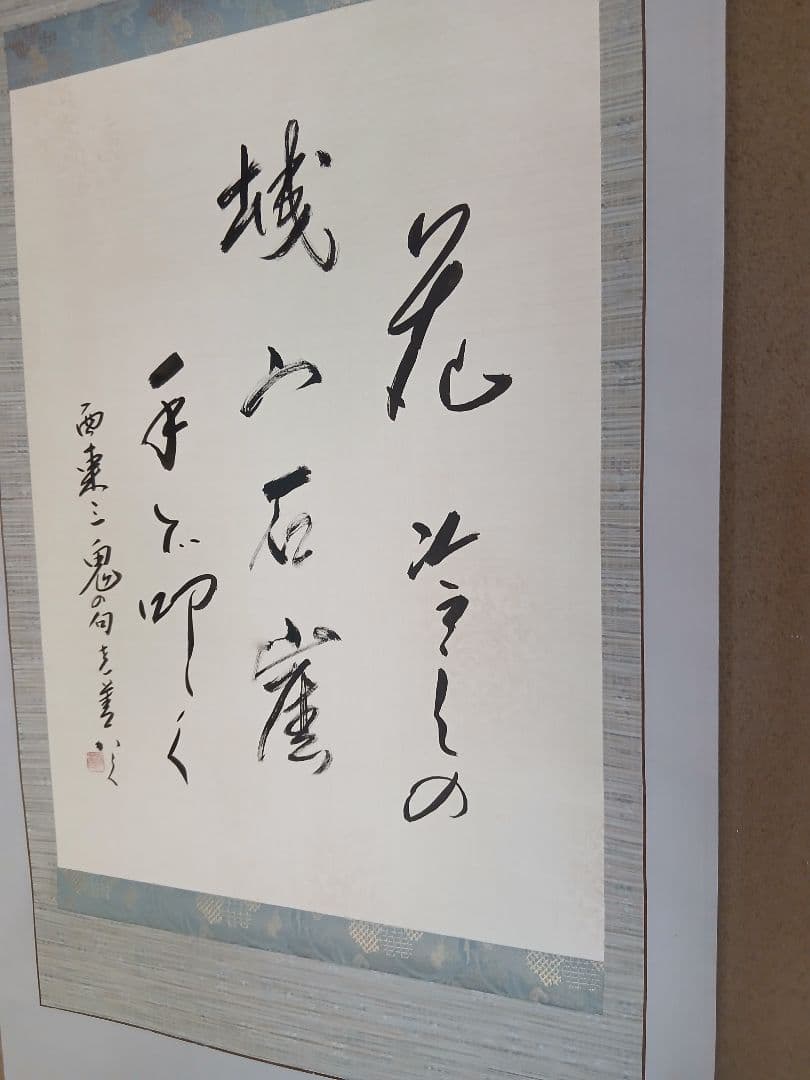 花冷えの
城の石崖
手で叩く
西東三鬼の句